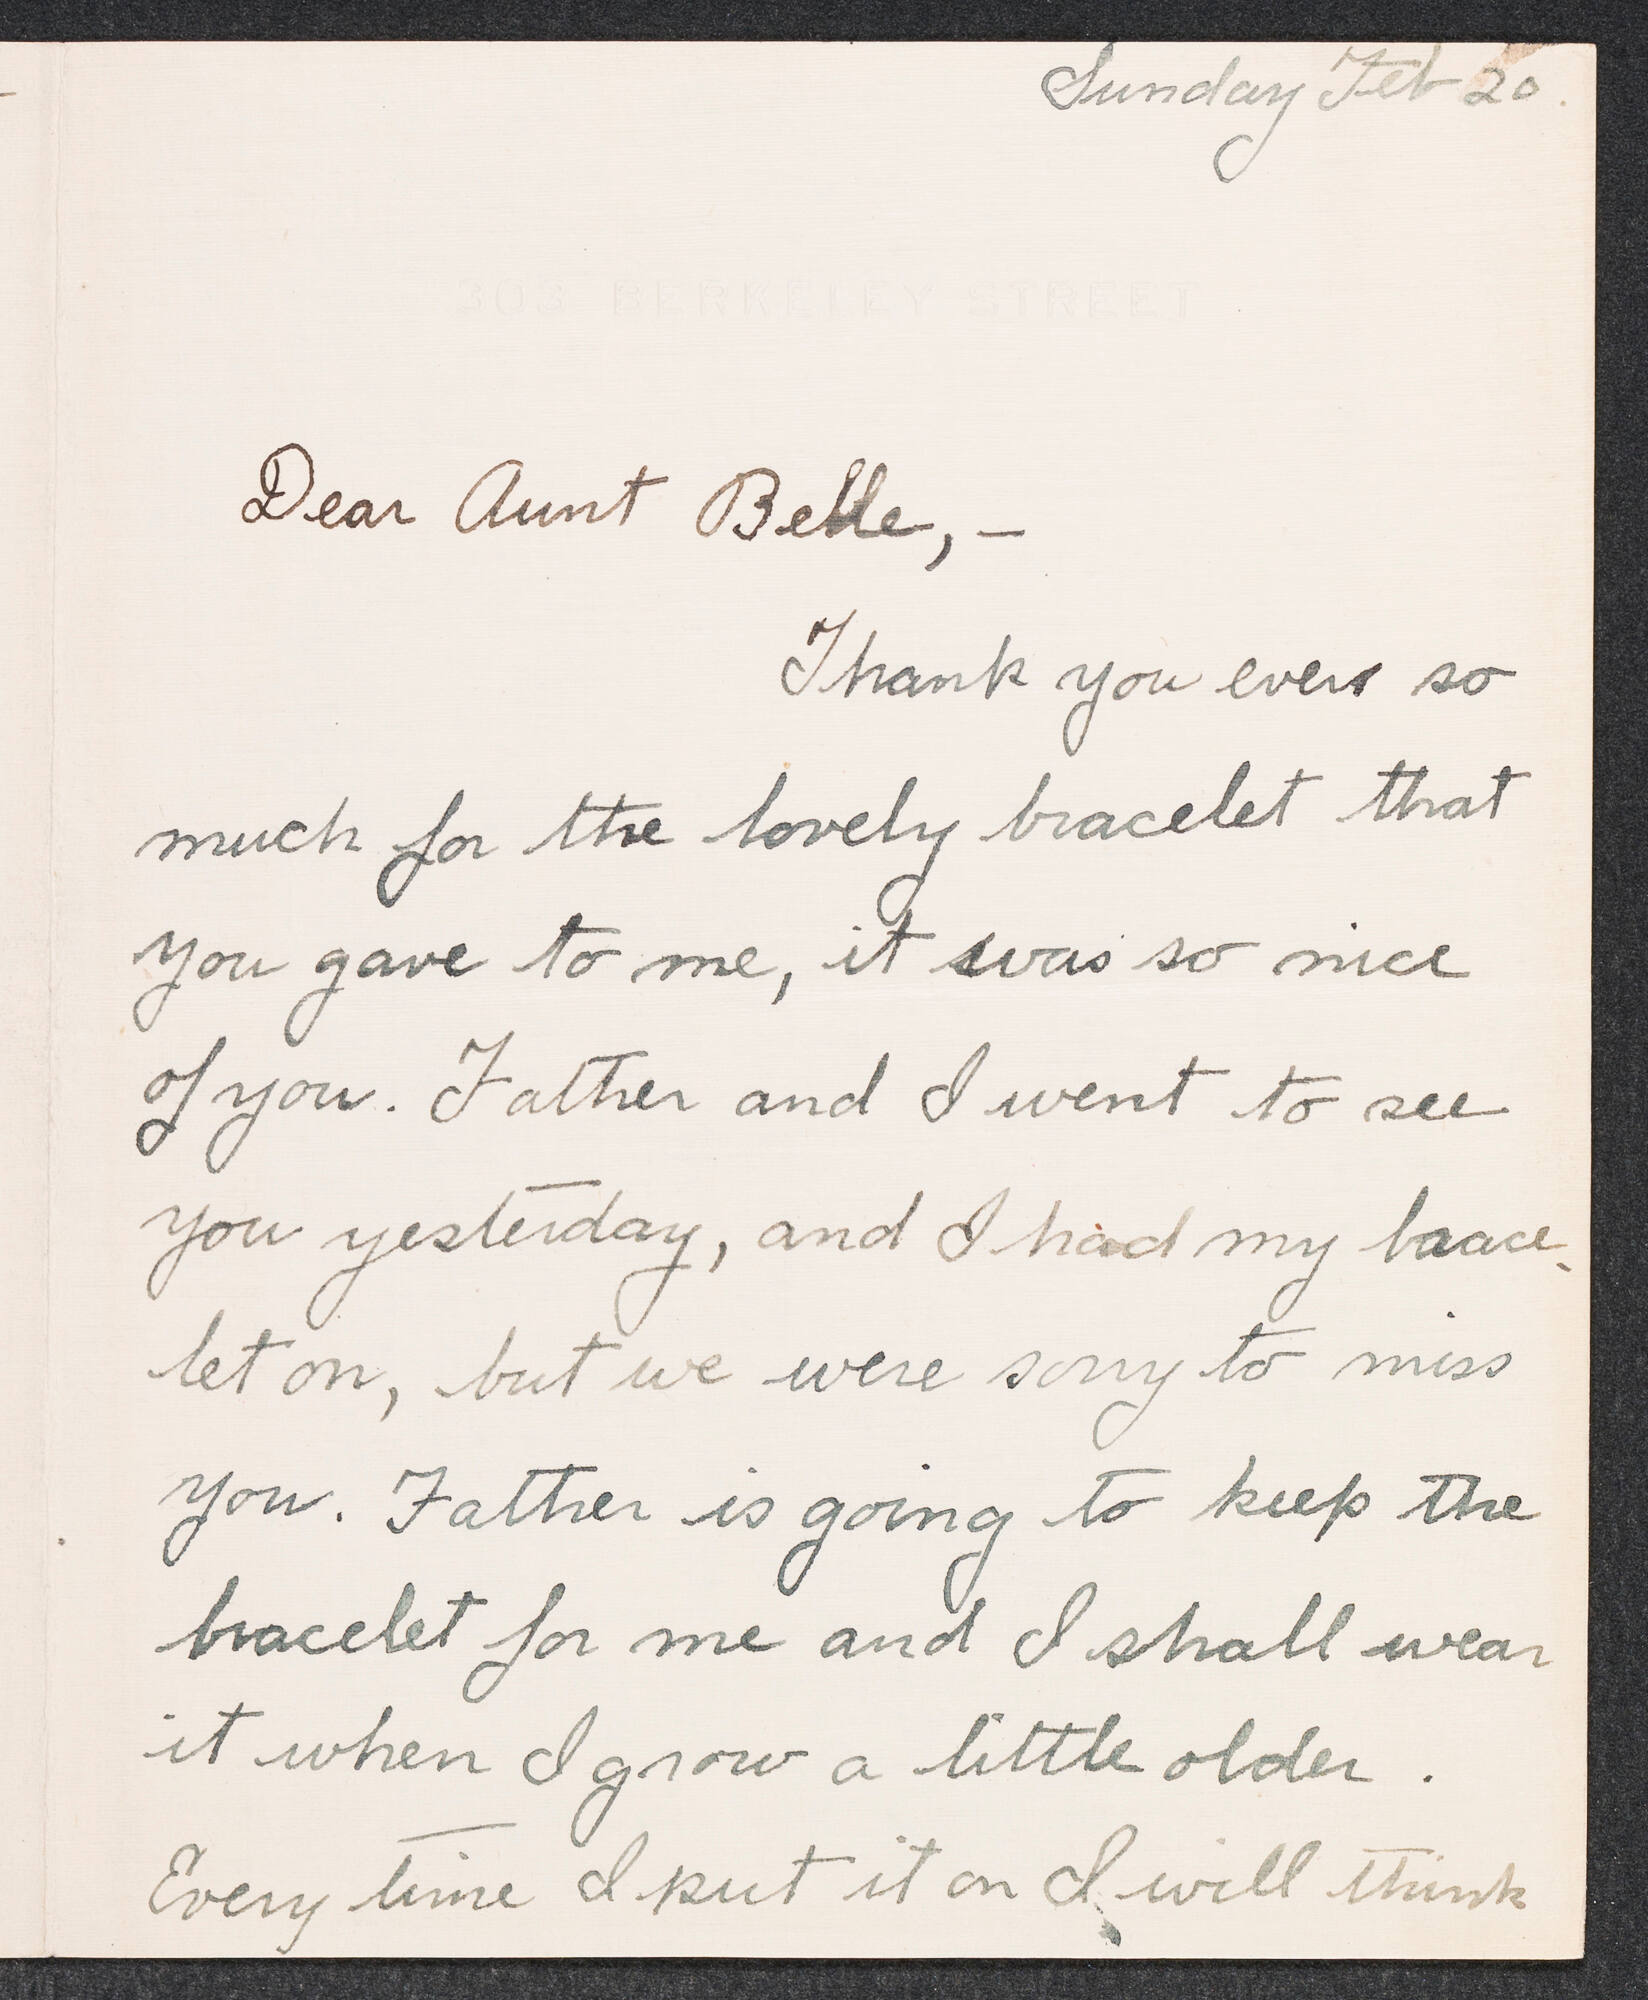 Sunday Feb 20.
303 BERKELEY STREET
Dear Aunt Belle, —
Thank you ever so
much for the lovely bracelet that
you gave to me, it was so nice
of you. Father and I went to see
you yesterday, and I had my brace-
let on, but we were sorry to miss
you. Father is going to keep the
bracelet for me and I shall wear
it when I grow a little older.
Every time I put it on I will think